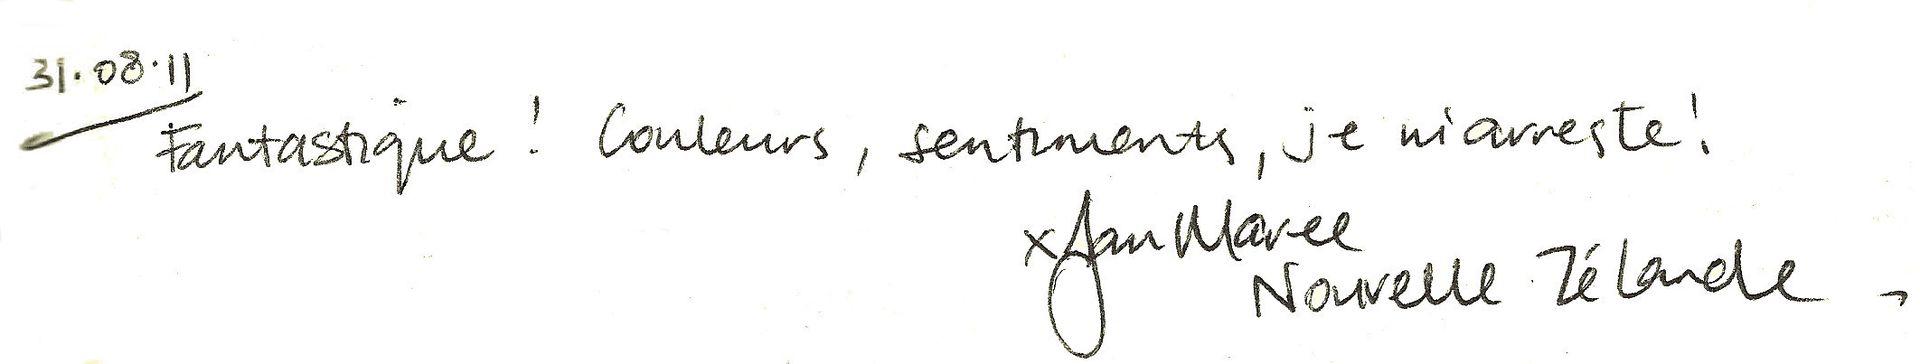 31.08.11
Fantastique ! Couleurs, sentiments, je m'arreste !
x Jan Maree
Nouvelle Zélande